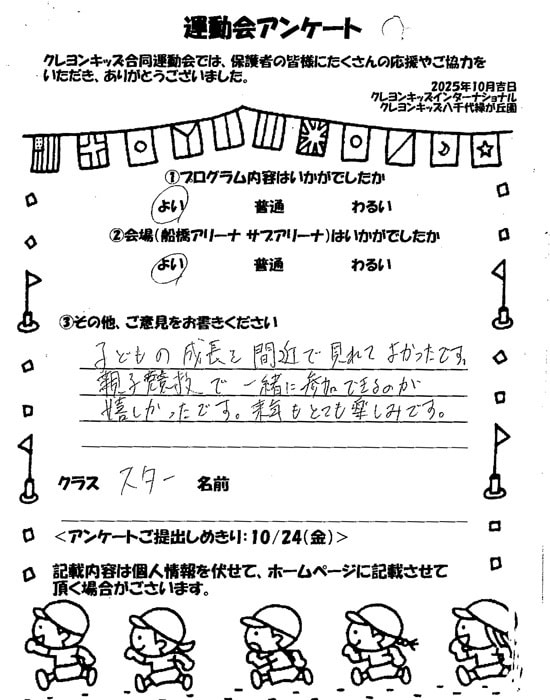 運動会アンケート
クレヨンキッズ合同運動会では、保護者の皆様にたくさんの応援やご協力を
いただき、ありがとうございました。
2025年10月吉日
クレヨンキッズインターナショナル
クレヨンキッズ八千代緑が丘園
①プログラム内容はいかがでしたか
よい 普通 わるい
②会場(船橋アリーナ サブアリーナ)はいかがでしたか
よい 普通 わるい
③その他、ご意見をお書きください
子どもの成長を間近で見れてよかったです。
親子競技で一緒に参加できるのが
嬉しかったです。来年もとても楽しみです。
クラス スター 名前
<アンケートご提出しめきり:10/24(金)>
記載内容は個人情報を伏せて、ホームページに記載させて
頂く場合がございます。